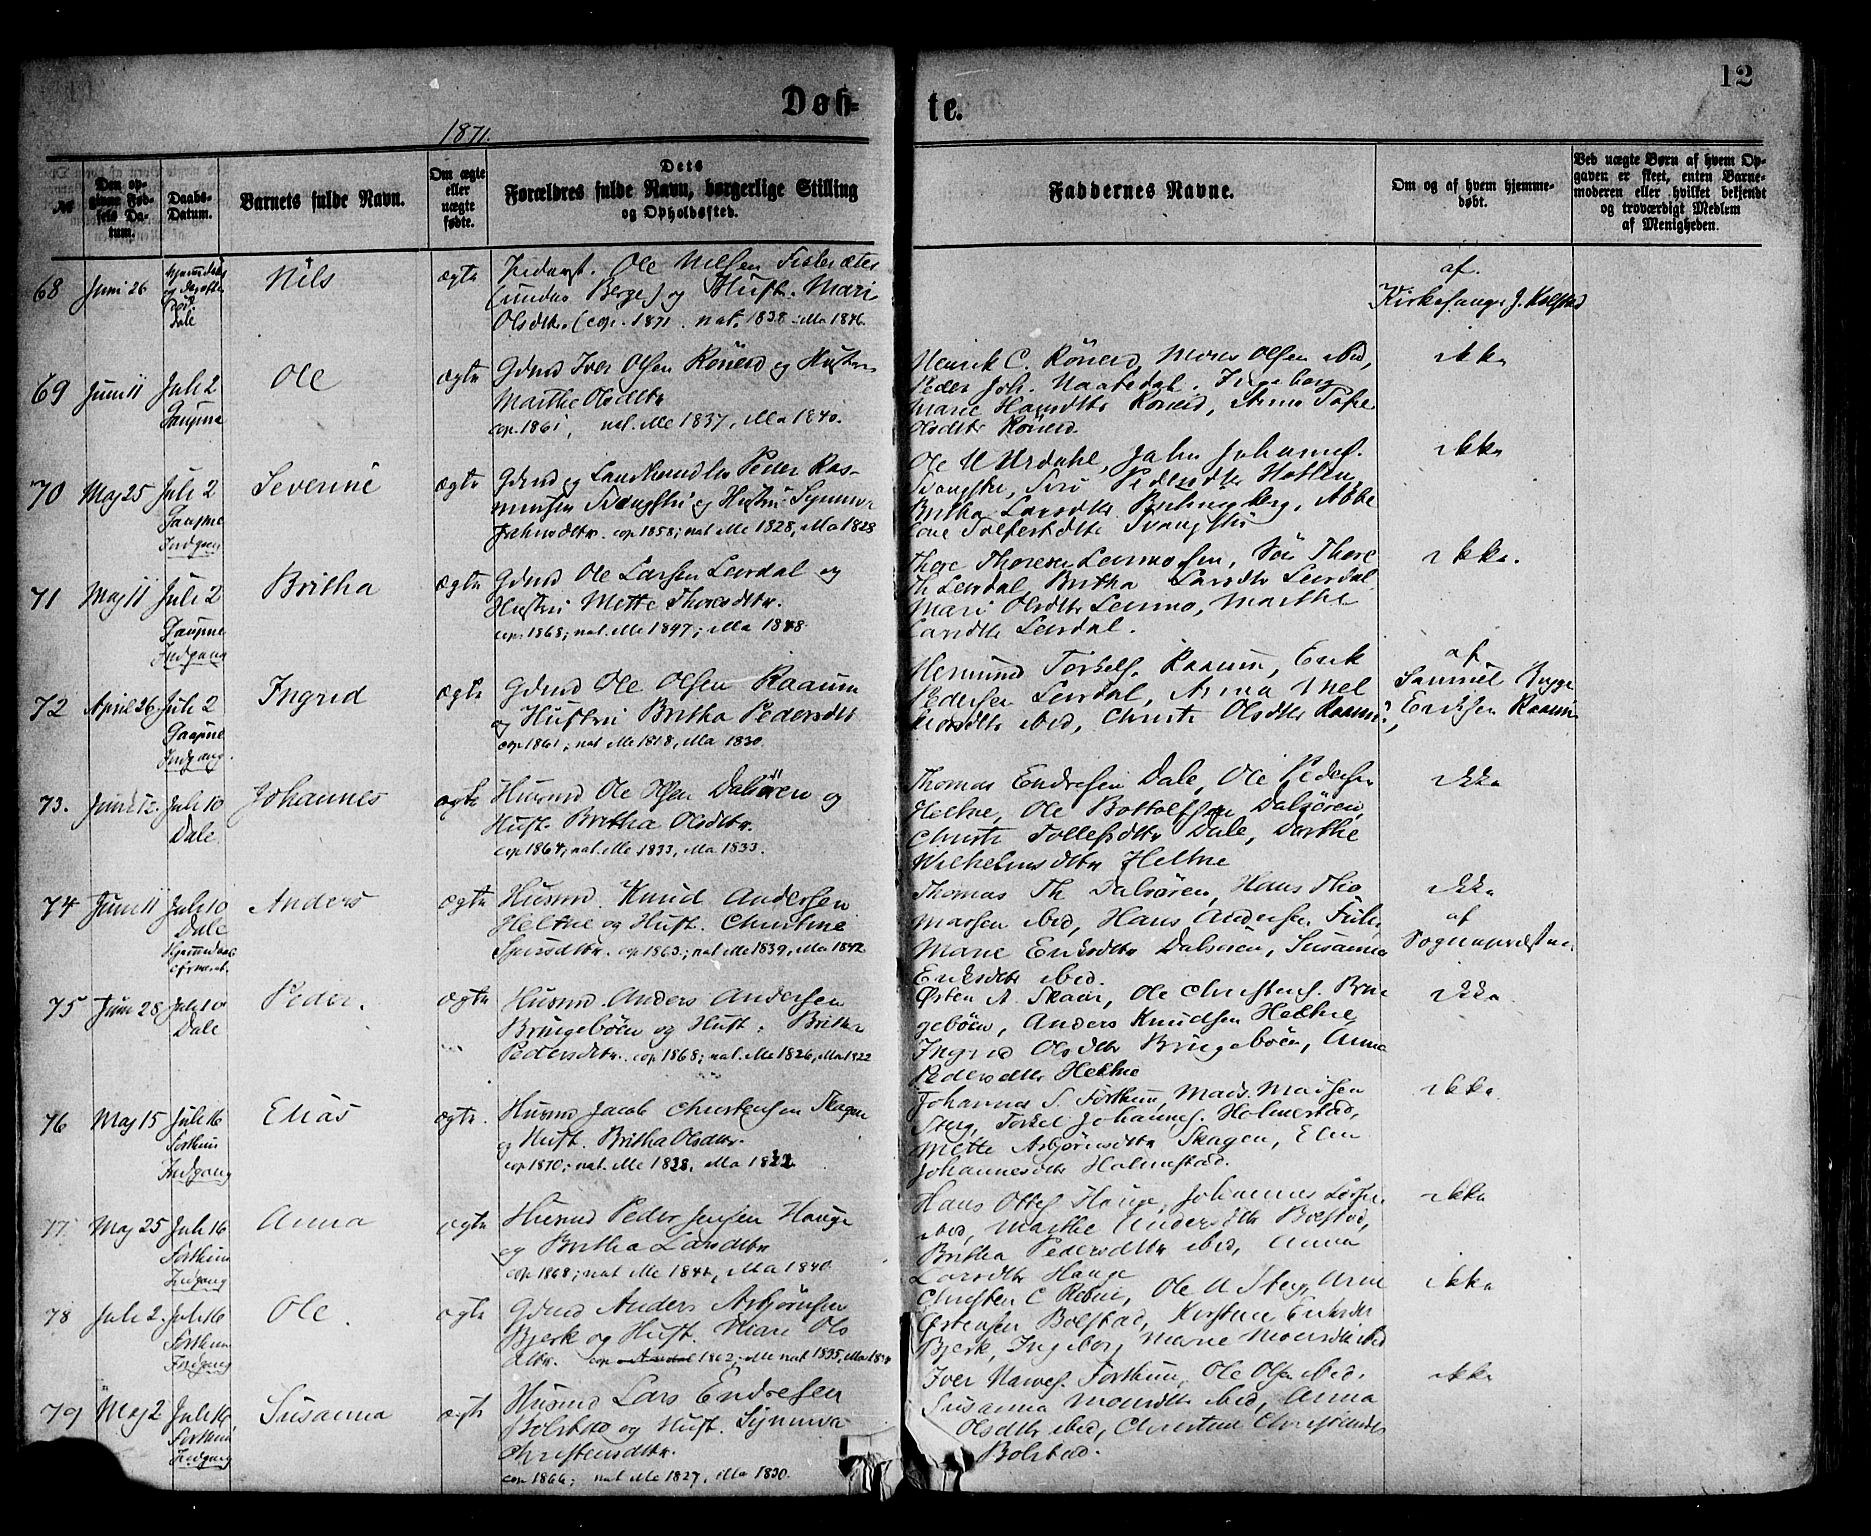 12
Døb-
te.
1871.
№
Den op-
givne Fød-
sels Da-
tum.
Daabs-
Datum.
Barnets fulde Navn.
Om ægte
eller
uægte
fødte.
Dets
Forældres fulde Navn, borgerlige Stilling
og Opholdssted.
Faddernes Navne.
Om og af hvem hjemme-
døbt.
Ved uægte Børn af hvem Op-
gaven er skeet, enten Barne-
moderen eller hvilket bekjendt
og troværdigt Medlem
af Menigheden.
68 Juni 26
Dale
Nils
ægte
Ole Nilsen
Berge) og Hust. Mari
Olsdtr. (cop. 1871. nat. 1838 Ma 1846.
af
Kirkesanger J. Kolstad
69 Juni 11 Juli 2
Gaupne
Ole
ægte
Gdmd Iver Olsen Röneid og Hustru
Marthe Olsdtr
cop. 1861, nat. Me 1837, Ma 1840.
Henrik C. Röneid, Mons Olsen ibid,
Peder Joh. Ingeborg
Marie Hansdtr Röneid, Anna
Olsdtr Röneid.
ikke
70 Maj 25 Juli 2
Gaupne
Indgang
Severine
ægte
Gdmd og Landhandler Peder Ras-
mussen og Hustru Synneva
cop 1858; nat Me 1828, Ma 1828
Ole U Urdahl, John Johannes.
Pedersdtr
Britha Larsdtr
ikke
71 Maj 11 Juli 2
Gaupne
Indgang
Britha
ægte
Gdmd Ole Larsen Leirdal og
Hustru Mette Thoresdtr.
cop. 1868; nat. Me 1847; Ma 1848.
Thore Thoresen Leirmosen, Thore
Th Leirdal Britha Larsdtr Leirdal
Mari Olsdtr Leirmo, Marthe
Larsdtr Leirdal.
ikke.
72 April 26 Juli 2
Gaupne
Indgang.
Ingrid
ægte
Gdmd Ole Olsen Raaum
og Hustru Britha Pedersdtr
cop 1861; nat Me 1818, Ma 1830.
Hermund Torkels. Raaum, Erik
Pedersen Leirdal, Anna
ibid, Christi Olsdtr Raaum,
af
Samuel
Eriksen Raaum
73. Juni 12. Juli 10
Dale
Johannes
ægte
Husmd Ole Olsen Dalsören og
Hust. Britha Olsdtr.
cop 1864; nat. Me 1833, Ma 1833.
Thomas Endresen Dale, Ole Pedersen
Heltne, Ole Bottolfsen Dalsören,
Christi Tollefsdtr Dale, Dorthe
Wilhelmsdtr Heltne
ikke
74 Juni 11 Juli 10
Dale
Anders
ægte
Husmd Knud Andersen
Heltne og Hust. Christine
Sjursdtr. cop 1863; nat Me 1839, Ma 1842
Thomas Th Dalsören, Hans Tho
massen ibid, Hans Andersen
Marie Eriksdtr Dalsören, Susanna
Eriksdtr ibid.
ikke
af
Sognepræsten
75 Juni 28 Juli 10
Dale
Peder.
ægte
Husmd. Anders Andersen
Bringeböen og Hust. Britha
Pedersdtr. cop 1868; nat. Me 1826, Ma 1822
Østen A Skaar, Ole Christens. Brin
geböen, Anders Knudsen Heltne
Ingrid Olsdtr Bringeböen, Anna
Pedersdtr Heltne
ikke
76 Maj 15 Juli 16
Forthun
Indgang
Elias
ægte.
Husmd Jacob Christensen Skagen
og Hust. Britha Olsdtr.
cop 1870; nat Me 1828, Ma 1832
Johannes S Forthun, Mads. Madsen
Steig, Torkel Johannes. Holmestad,
Mette Asbjörnsdtr Skagen, Elen
Johannesdtr Holmestad.
ikke
77 Maj 25 Juli 16
Forthun
Indgang
Anna
ægte
Husmd Peder Jensen Hauge
og Britha Larsdtr
cop 1868; nat Me 1844, Ma 1840.
Hans Ottes Hauge, Johannes
ibid, Marthe Andersdtr Bolstad,
Britha Pedersdtr ibid, Anna
Larsdtr Hauge
ikke
78 Juli 2. Juli 16
Forthun
Indgang
Ole.
ægte
Gdmd Anders Asbjörnsen
Bjerk og Hust. Mari Ols
dtr. cop 1862; nat 1835,
Christen C Ole Arne
Østensen Bolstad, Kirstine Eriksdtr
Bjerk, Ingeborg Marie ibid
ikke
79 Maj 2 Juli 16
Forthun
Indgang
Susanna
ægte
Husmd Lars Endresen
Bolstad og Hust. Synneva
Christensdtr.
cop 1866; nat Me 1827, Ma 1830.
Iver Forthun, Ole Olsen ibid.
Susanna ibid, Anna
Olsdtr ibid, Christine
Bolstad.
ikke